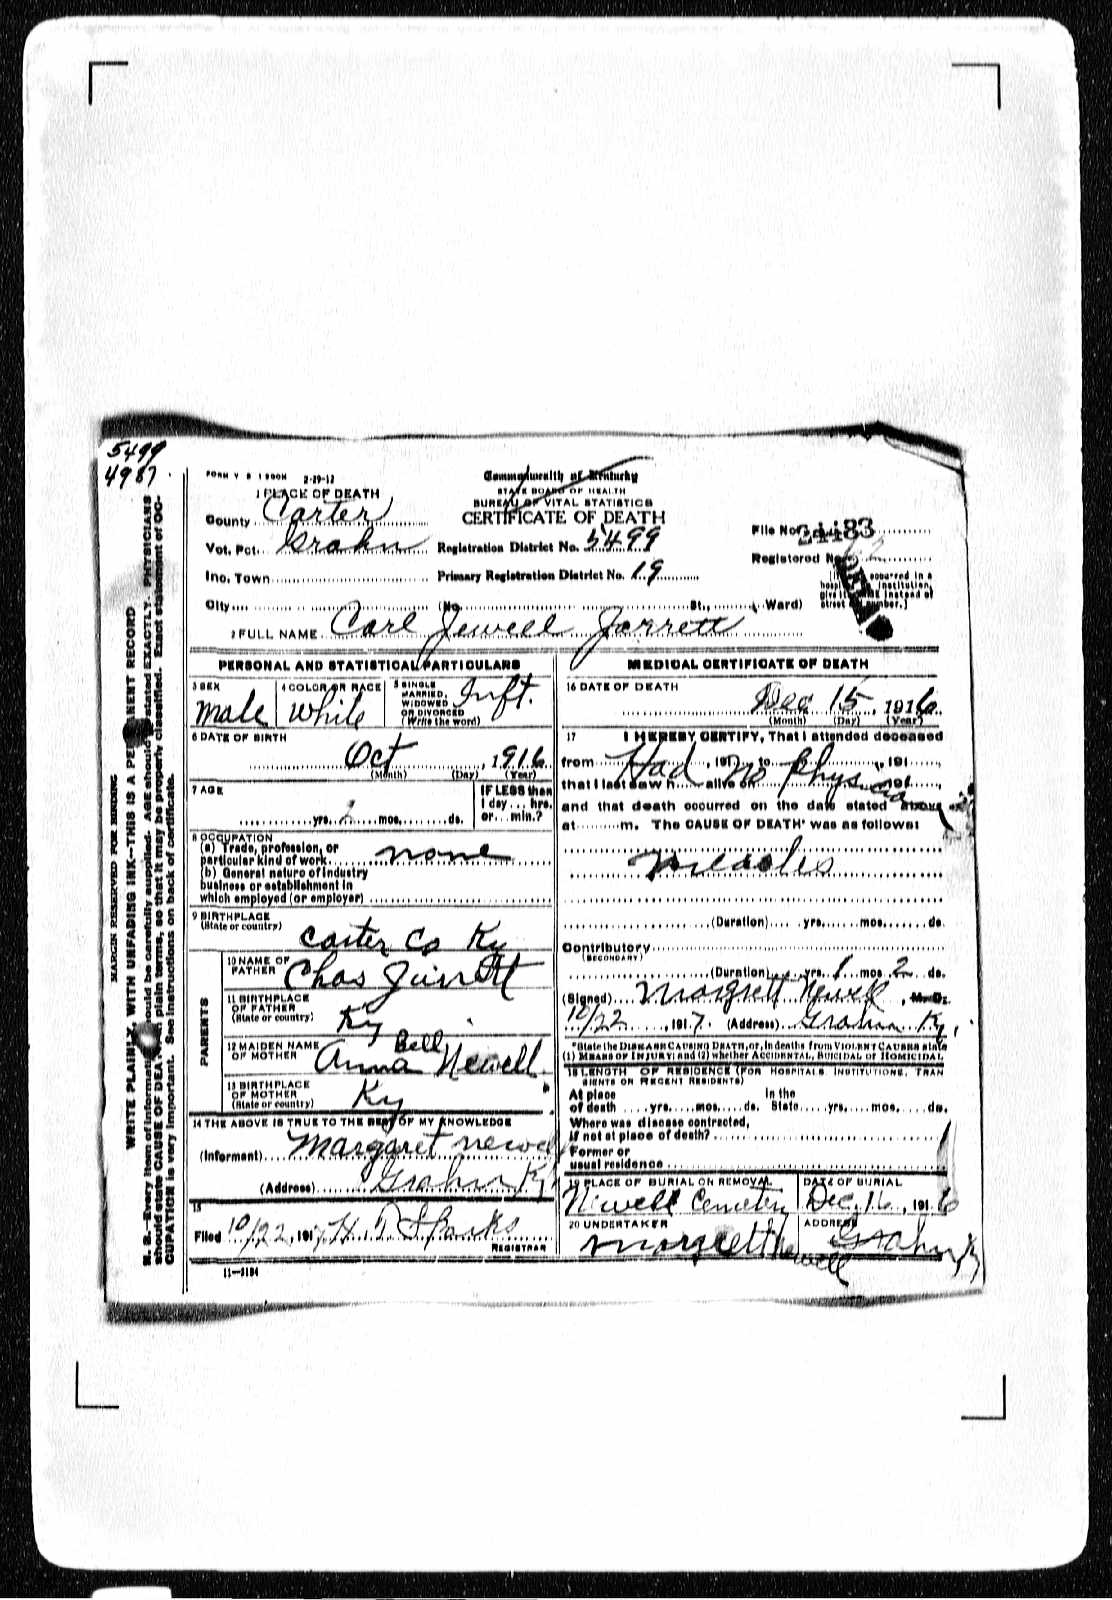 5499
4987
FORM V S 1 500M 2-29-12
Commonwealth of Kentucky
STATE BOARD OF HEALTH
BUREAU OF VITAL STATISTICS
CERTIFICATE OF DEATH
1 PLACE OF DEATH
County Carter
Vot. Pct. Grahn
Registration District No. 5499
File No. 24483
Registered No.
Inc. Town
Primary Registration District No. 19
City (No. St., Ward)
2 FULL NAME Carl Jewell Jarrett
PERSONAL AND STATISTICAL PARTICULARS
3 SEX Male
4 COLOR OR RACE White
5 SINGLE, MARRIED, WIDOWED OR DIVORCED (Write the word) Inft.
6 DATE OF BIRTH
Oct, 1916
(Month) (Day) (Year)
7 AGE
yrs. 2 mos. ds.
IF LESS than 1 day... hrs. or... min.?
8 OCCUPATION
(a) Trade, profession, or particular kind of work none
(b) General nature of industry business or establishment in which employed (or employer)
9 BIRTHPLACE
(State or country) Carter Co Ky
PARENTS
10 NAME OF FATHER Chas Jarrett
11 BIRTHPLACE OF FATHER (State or country) Ky
12 MAIDEN NAME OF MOTHER Anna Bell Newell
13 BIRTHPLACE OF MOTHER (State or country) Ky
14 THE ABOVE IS TRUE TO THE BEST OF MY KNOWLEDGE
(Informant) Margaret Newell
(Address) Grahn Ky
15
Filed 10/22, 1917 H. T. Sparks
REGISTRAR
11-3184
MEDICAL CERTIFICATE OF DEATH
16 DATE OF DEATH
Dec 15, 1916
(Month) (Day) (Year)
17 I HEREBY CERTIFY, That I attended deceased
from Had, 191 to No Physician, 191
that I last saw h alive on 191
and that death occurred on the date stated above
at m. The CAUSE OF DEATH* was as follows:
Measles
(Duration) yrs. mos. ds.
Contributory
(SECONDARY)
(Duration) yrs. 1 mos 2 ds.
(Signed) Margrett Newell, M. D.
10/22, 1917. (Address) Grahn Ky.
*State the DISEASE CAUSING DEATH, or, in deaths from VIOLENT CAUSES state
(1) MEANS OF INJURY; and (2) whether ACCIDENTAL, SUICIDAL or HOMICIDAL
18 LENGTH OF RESIDENCE (FOR HOSPITALS, INSTITUTIONS, TRANSIENTS OR RECENT RESIDENTS)
At place of death yrs. mos. ds. In the State yrs. mos. ds.
Where was disease contracted,
if not at place of death?
Former or
usual residence
19 PLACE OF BURIAL OR REMOVAL Newell Cemetery
DATE OF BURIAL Dec. 16, 1916
20 UNDERTAKER Margrett Newell
ADDRESS Grahn Ky
MARGIN RESERVED FOR BINDING
WRITE PLAINLY, WITH UNFADING INK--THIS IS A PERMANENT RECORD
N. B.--Every item of information should be carefully supplied. AGE should be stated EXACTLY. PHYSICIANS
should state CAUSE OF DEATH in plain terms, so that it may be properly classified. Exact statement of OC-
CUPATION is very important. See instructions on back of certificate.